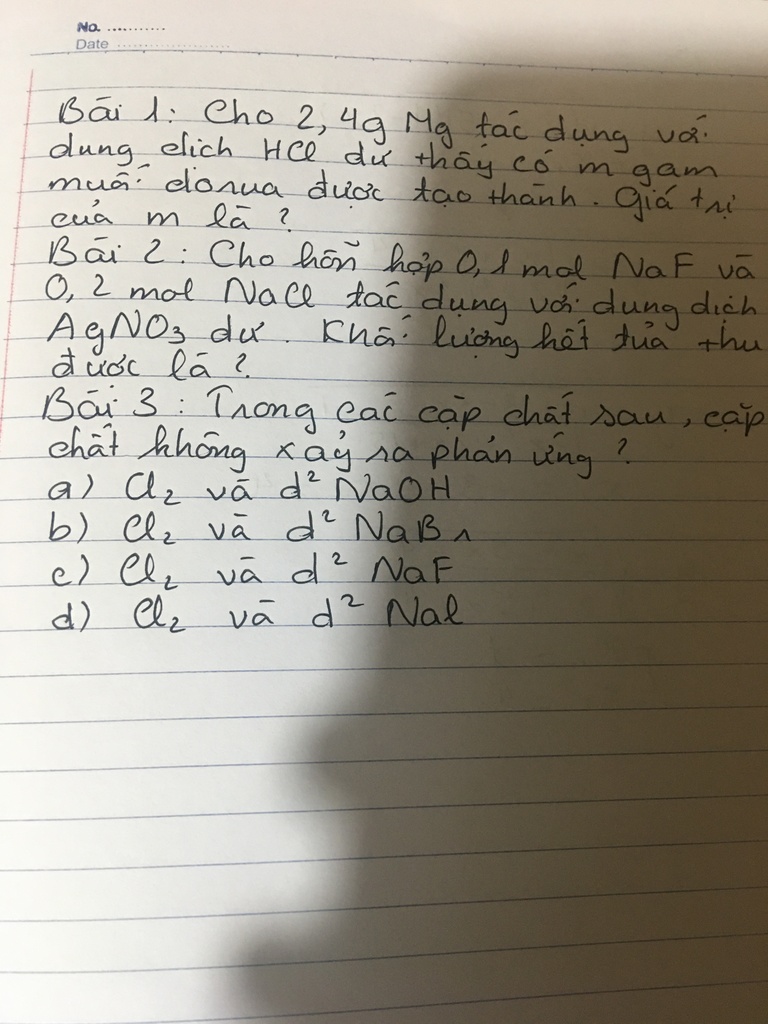 No. ...........
Date ......................
Bài 1: Cho 2,4g Mg tác dụng với
dung dịch HCl dư thấy có m gam
muối clorua được tạo thành. Giá trị
của m là ?
Bài 2: Cho hỗn hợp 0,1 mol NaF và
0,2 mol NaCl tác dụng với dung dịch
AgNO3 dư. Khối lượng kết tủa thu
được là ?
Bài 3: Trong các cặp chất sau, cặp
chất không xảy ra phản ứng ?
a) Cl2 và d² NaOH
b) Cl2 và d² NaBr
c) Cl2 và d² NaF
d) Cl2 và d² NaI